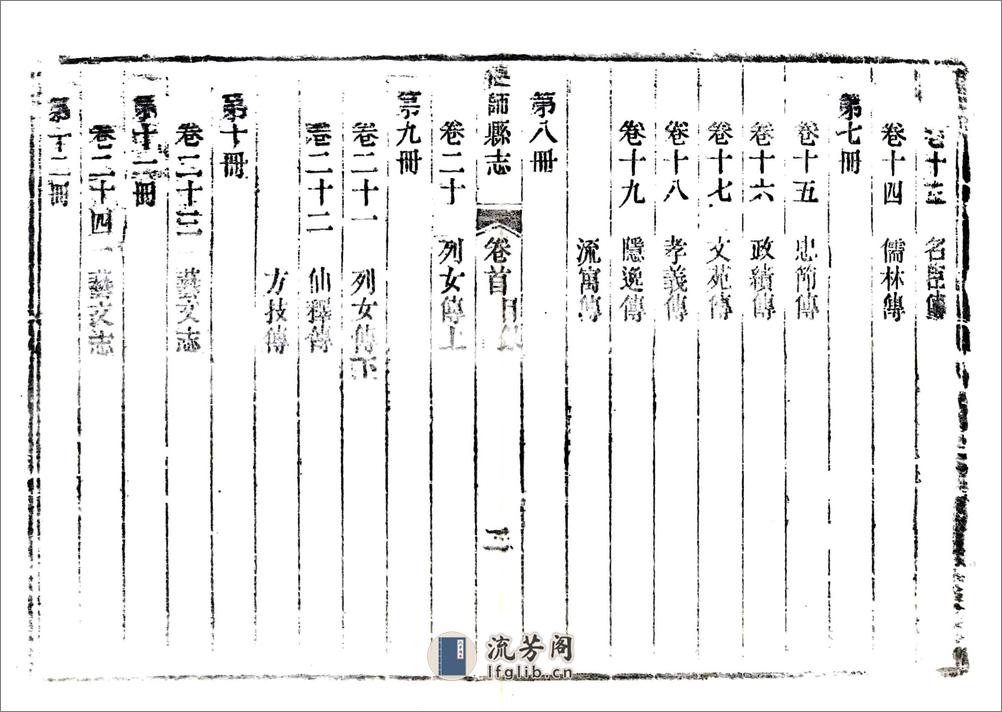 卷十三 名臣傳
卷十四 儒林傳
第七冊
卷十五 忠節傳
卷十六 政績傳
卷十七 文苑傳
卷十八 孝義傳
卷十九 隱逸傳
流寓傳
第八冊
偃師縣志 卷首 目錄 三
卷二十 列女傳上
第九冊
卷二十一 列女傳下
卷二十二 仙釋傳
方技傳
第十冊
卷二十三 藝文志
第十一冊
卷二十四 藝文志
第十二冊
流芳阁
lfglib.cn